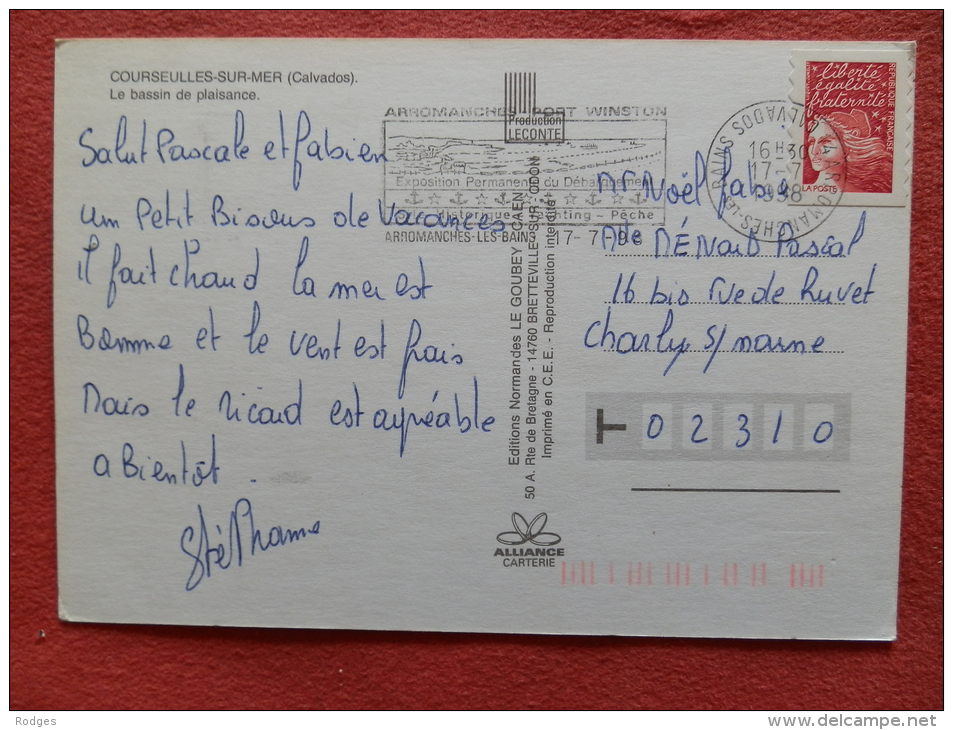 COURSEULLES-SUR-MER (Calvados).
Le bassin de plaisance.
Salut Pascale et fabien
un Petit Bisous de Vacances
il fait chaud la mer est
Bonne et le vent est frais
Mais le ricard est agréable
a Bientôt.
Stéphane
ARROMANCHES - PORT WINSTON
Production
LECONTE
Exposition Permanente du Débarquement
Historique - Yachting - Pêche
ARROMANCHES-LES-BAINS 17-7-1998
Editions Normandes LE GOUBEY - CAEN
50 A. Rte de Bretagne - 14760 BRETTEVILLE-SUR-ODON
Imprimé en C.E.E. - Reproduction interdite
ALLIANCE
CARTERIE
liberté
égalité
fraternité
RÉPUBLIQUE FRANÇAISE
LA POSTE
14 ARROMANCHES-LES-BAINS CALVADOS
16 H 30
17-7
1998
Mr Noël fabien
Mle MÉNARD Pascal
16 bis rue de Ruvet
Charly s/ marne
T 02310
Rodges
delcampe.net